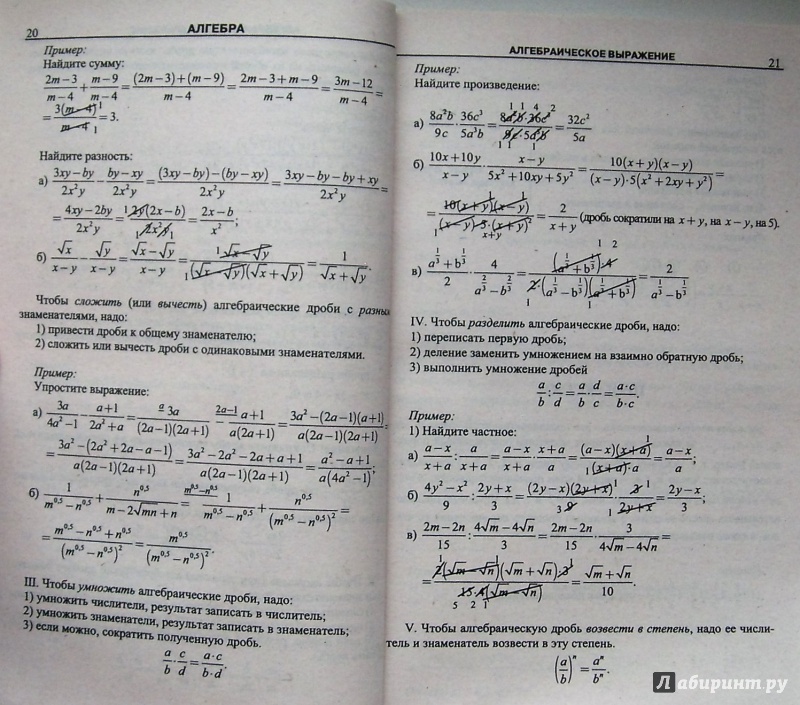 20
АЛГЕБРА
Пример:
Найдите сумму:
(2m−3)/(m−4) + (m−9)/(m−4) = ((2m−3)+(m−9))/(m−4) = (2m−3+m−9)/(m−4) = (3m−12)/(m−4) =
= 3(m−4)/(m−4) = 3.
Найдите разность:
а) (3xy−by)/(2x²y) − (by−xy)/(2x²y) = ((3xy−by)−(by−xy))/(2x²y) = (3xy−by−by+xy)/(2x²y) =
= (4xy−2by)/(2x²y) = 2y(2x−b)/(2x²y) = (2x−b)/x²;
б) √x/(x−y) − √y/(x−y) = (√x−√y)/(x−y) = (√x−√y)/((√x−√y)(√x+√y)) = 1/(√x+√y).
Чтобы сложить (или вычесть) алгебраические дроби с разны
знаменателями, надо:
1) привести дроби к общему знаменателю;
2) сложить или вычесть дроби с одинаковыми знаменателями.
Пример:
Упростите выражение:
а) 3a/(4a²−1) − (a+1)/(2a²+a) = 3a/((2a−1)(2a+1)) − (a+1)/(a(2a+1)) = (3a²−(2a−1)(a+1))/(a(2a−1)(2a+1)) =
= (3a²−(2a²+2a−a−1))/(a(2a−1)(2a+1)) = (3a²−2a²−2a+a+1)/(a(2a−1)(2a+1)) = (a²−a+1)/(a(4a²−1));
б) 1/(m^0,5−n^0,5) + n^0,5/(m−2√mn+n) = 1/(m^0,5−n^0,5) + n^0,5/(m^0,5−n^0,5)² =
= (m^0,5−n^0,5+n^0,5)/(m^0,5−n^0,5)² = m^0,5/(m^0,5−n^0,5)².
III. Чтобы умножить алгебраические дроби, надо:
1) умножить числители, результат записать в числитель;
2) умножить знаменатели, результат записать в знаменатель;
3) если можно, сократить полученную дробь.
a/b · c/d = (a·c)/(b·d).
АЛГЕБРАИЧЕСКОЕ ВЫРАЖЕНИЕ
21
Пример:
Найдите произведение:
а) 8a²b/9c · 36c³/5a³b = (8a²b·36c³)/(9c·5a³b) = 32c²/5a
б) (10x+10y)/(x−y) · (x−y)/(5x²+10xy+5y²) = 10(x+y)(x−y)/((x−y)·5(x²+2xy+y²)) =
= 10(x+y)(x−y)/((x−y)·5·(x+y)²) = 2/(x+y) (дробь сократили на x+y, на x−y, на 5).
в) (a^⅓+b^⅓)/2 · 4/(a^⅔−b^⅔) = ((a^⅓+b^⅓)·4)/(2·(a^⅓−b^⅓)(a^⅓+b^⅓)) = 2/(a^⅓−b^⅓)
IV. Чтобы разделить алгебраические дроби, надо:
1) переписать первую дробь;
2) деление заменить умножением на взаимно обратную дробь;
3) выполнить умножение дробей
a/b : c/d = a/b · d/c = (a·c)/(b·c).
Пример:
1) Найдите частное:
а) (a−x)/(x+a) : a/(x+a) = (a−x)/(x+a) · (x+a)/a = (a−x)(x+a)/((x+a)·a) = (a−x)/a;
б) (4y²−x²)/9 : (2y+x)/3 = ((2y−x)(2y+x))/9 · 3/(2y+x) = (2y−x)/3;
в) (2m−2n)/15 : (4√m−4√n)/3 = (2m−2n)/15 · 3/(4√m−4√n) =
= 2(√m−√n)(√m+√n)·3/(15·4(√m−√n)) = (√m+√n)/10.
V. Чтобы алгебраическую дробь возвести в степень, надо ее числи-
тель и знаменатель возвести в эту степень.
(a/b)ⁿ = aⁿ/bⁿ.
Лабиринт.ру